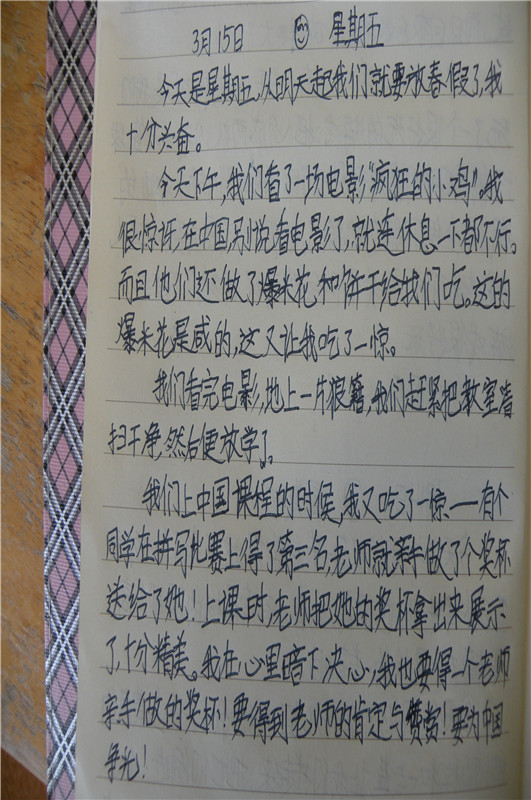 3月15日 星期五
今天是星期五,从明天起我们就要放春假了,我
十分兴奋。
今天下午,我们看了一场电影“疯狂的小鸡”。我
很惊讶,在中国别说看电影了,就连休息一下都不行。
而且他们还做了爆米花和饼干给我们吃。这的
爆米花是咸的,这又让我吃了一惊。
我们看完电影,地上一片狼籍,我们赶紧把教室
扫干净,然后便放学了。
我们上中国课程的时候,我又吃了一惊——有个
同学在拼写比赛上得了第三名,老师就亲手做了个奖杯
送给了她!上课时,老师把她的奖杯拿出来展示
了,十分精美。我在心里暗下决心,我也要得一个老师
亲手做的奖杯!要得到老师的肯定与赞赏!要为中国
争光!